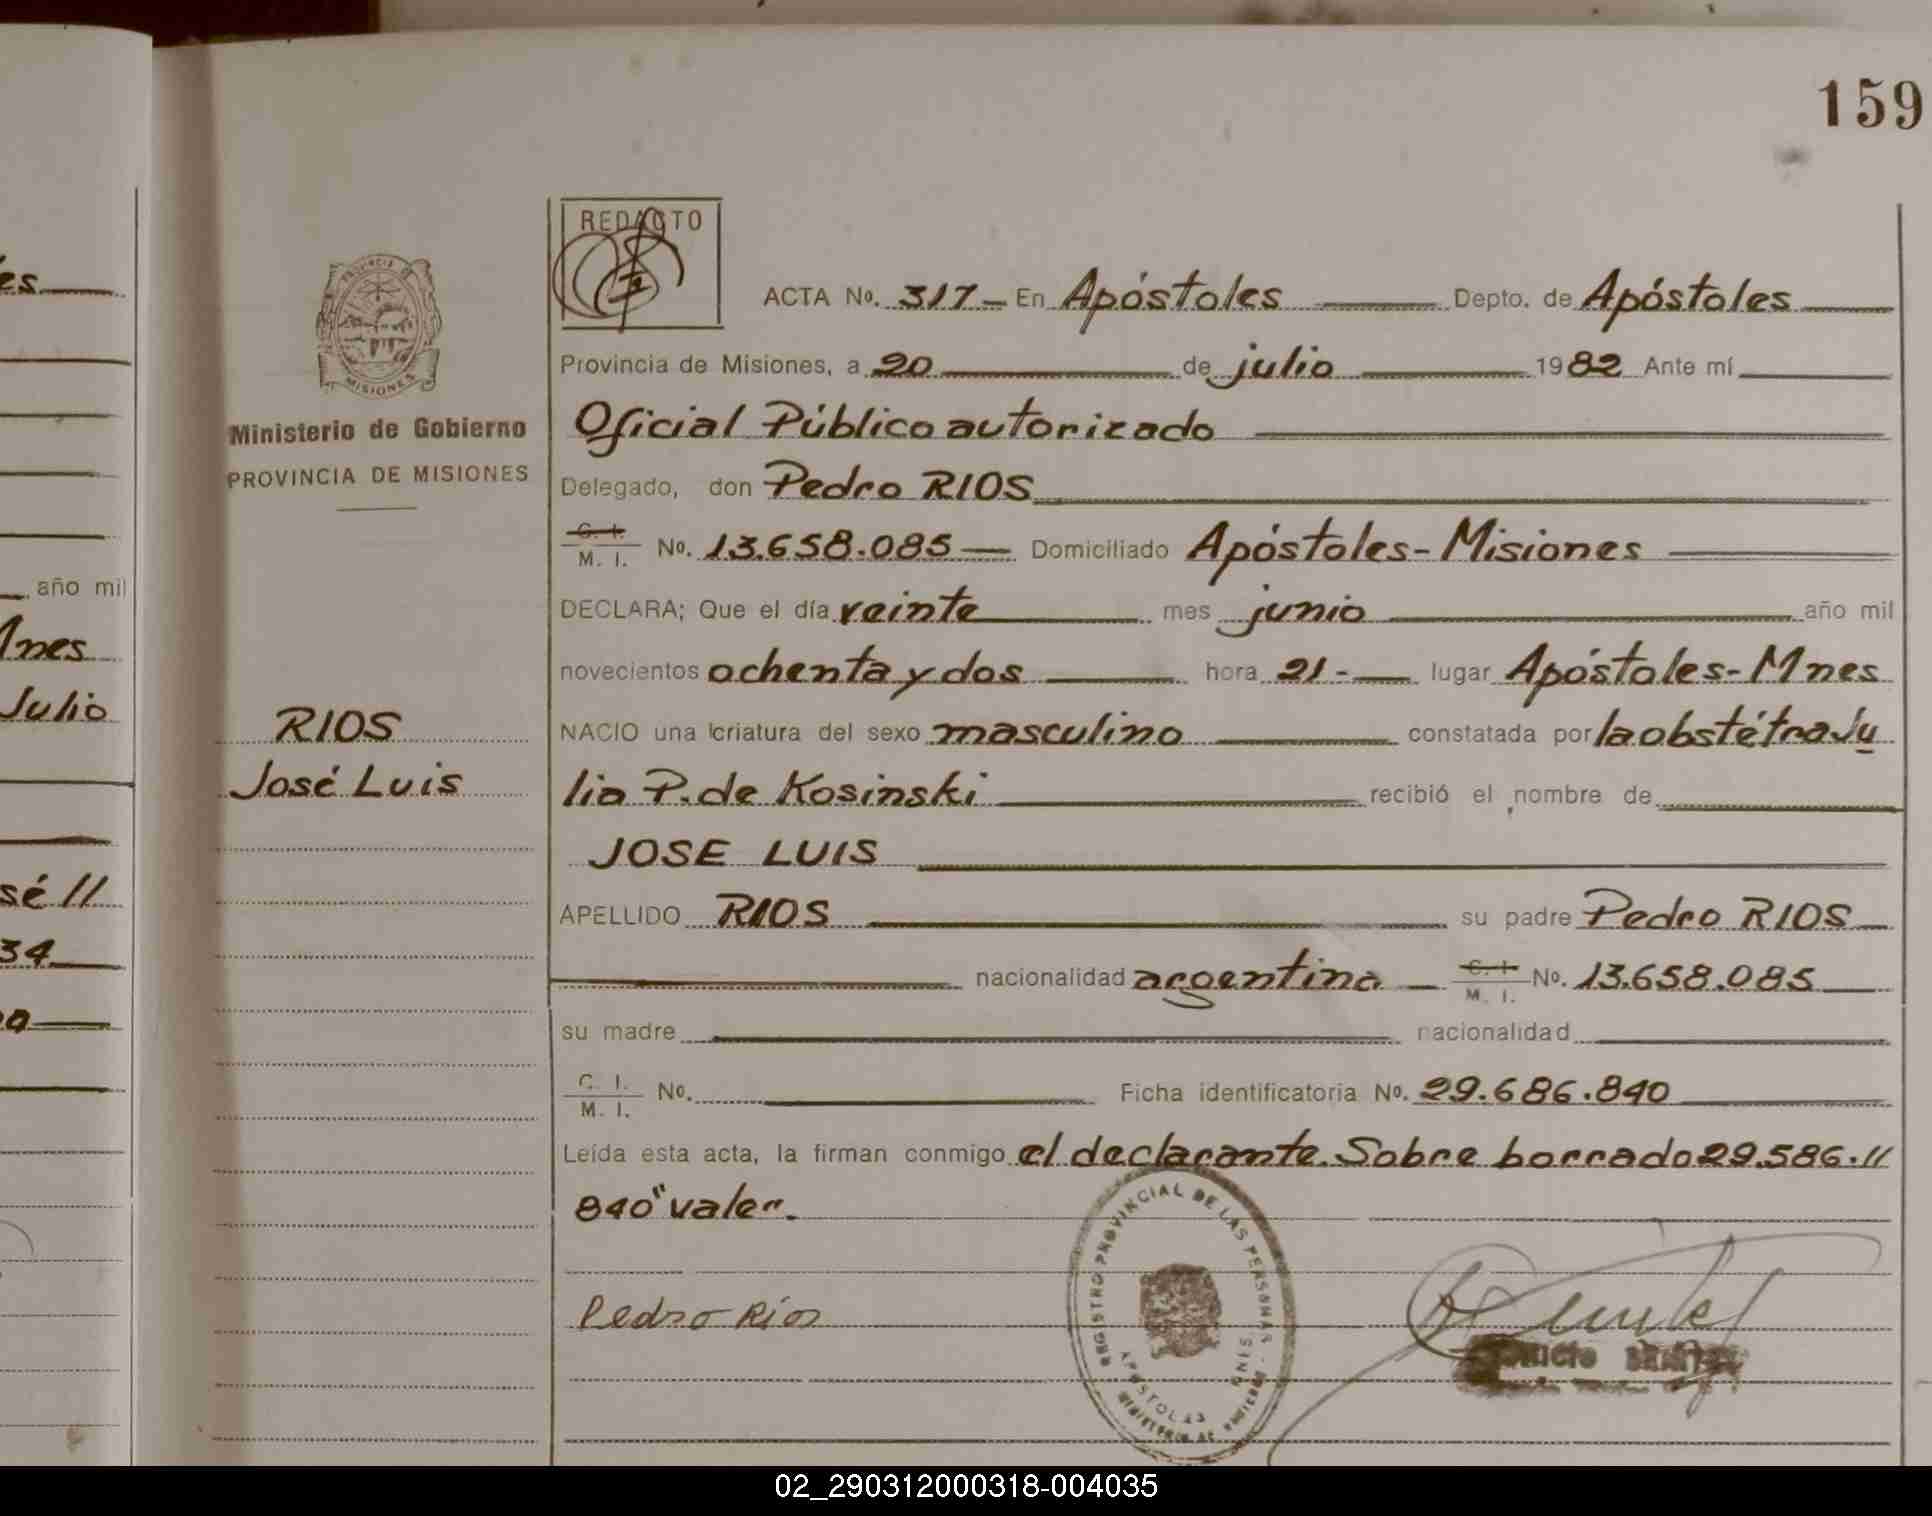 159
REDACTO
ACTA No. 317 - En Apóstoles Depto. de Apóstoles
Provincia de Misiones, a 20 de julio 1982 Ante mí
Oficial Público autorizado
Delegado, don Pedro RIOS
C. I.
M. I. No. 13.658.085 Domiciliado Apóstoles - Misiones
DECLARA; Que el día veinte mes junio año mil
novecientos ochenta y dos hora 21 - lugar Apóstoles - Mnes
NACIO una criatura del sexo masculino constatada por la obstétra Ju
lia P. de Kosinski recibió el nombre de
JOSE LUIS
APELLIDO RIOS su padre Pedro RIOS
nacionalidad argentina C. I.
M. I. No. 13.658.085
su madre nacionalidad
C. I.
M. I. No. Ficha identificatoria No. 29.686.840
Leída esta acta, la firman conmigo el declarante. Sobre borrado 29.586.//
840 "vale".
Pedro Ríos
PROVINCIA DE
MISIONES
Ministerio de Gobierno
PROVINCIA DE MISIONES
RIOS
José Luis
REGISTRO PROVINCIAL DE LAS PERSONAS
APOSTOLES
es
año mil
Mnes
Julio
sé //
34
02_290312000318-004035